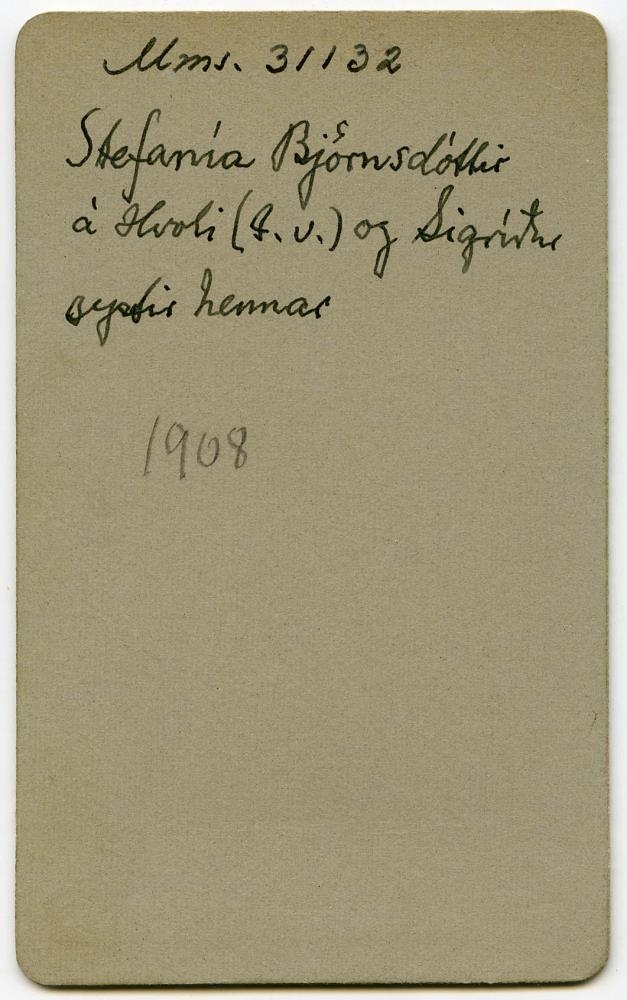 Mms. 31132
Stefanía Björnsdóttir
á Hvoli (t.v.) og Sigríður
systir hennar
1908